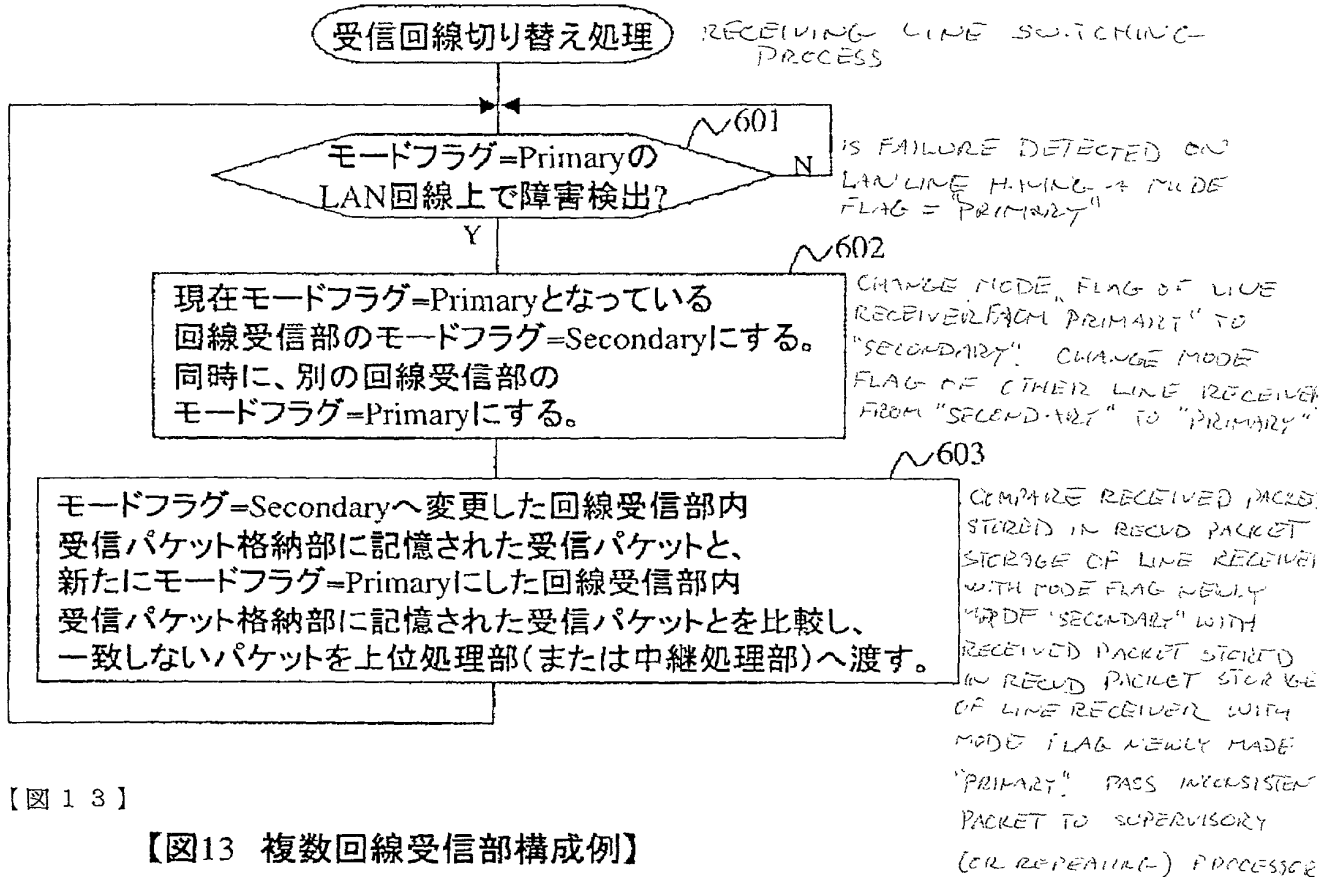 受信回線切り替え処理
RECEIVING LINE SWITCHING
PROCESS
601
モードフラグ=Primaryの
LAN回線上で障害検出?
N
Y
IS FAILURE DETECTED ON
LAN LINE HAVING A MODE
FLAG = "PRIMARY"
602
現在モードフラグ=Primaryとなっている
回線受信部のモードフラグ=Secondaryにする。
同時に、別の回線受信部の
モードフラグ=Primaryにする。
CHANGE MODE FLAG OF LINE
RECEIVER FROM "PRIMARY" TO
"SECONDARY". CHANGE MODE
FLAG OF OTHER LINE RECEIVER
FROM "SECONDARY" TO "PRIMARY"
603
モードフラグ=Secondaryへ変更した回線受信部内
受信パケット格納部に記憶された受信パケットと、
新たにモードフラグ=Primaryにした回線受信部内
受信パケット格納部に記憶された受信パケットとを比較し、
一致しないパケットを上位処理部(または中継処理部)へ渡す。
COMPARE RECEIVED PACKET
STORED IN RECVD PACKET
STORAGE OF LINE RECEIVER
WITH MODE FLAG NEWLY
MADE "SECONDARY" WITH
RECEIVED PACKET STORED
IN RECVD PACKET STORAGE
OF LINE RECEIVER WITH
MODE FLAG NEWLY MADE
"PRIMARY". PASS INCONSISTEN
PACKET TO SUPERVISORY
(OR REPEATING) PROCESSOR
【図13】
【図13 複数回線受信部構成例】